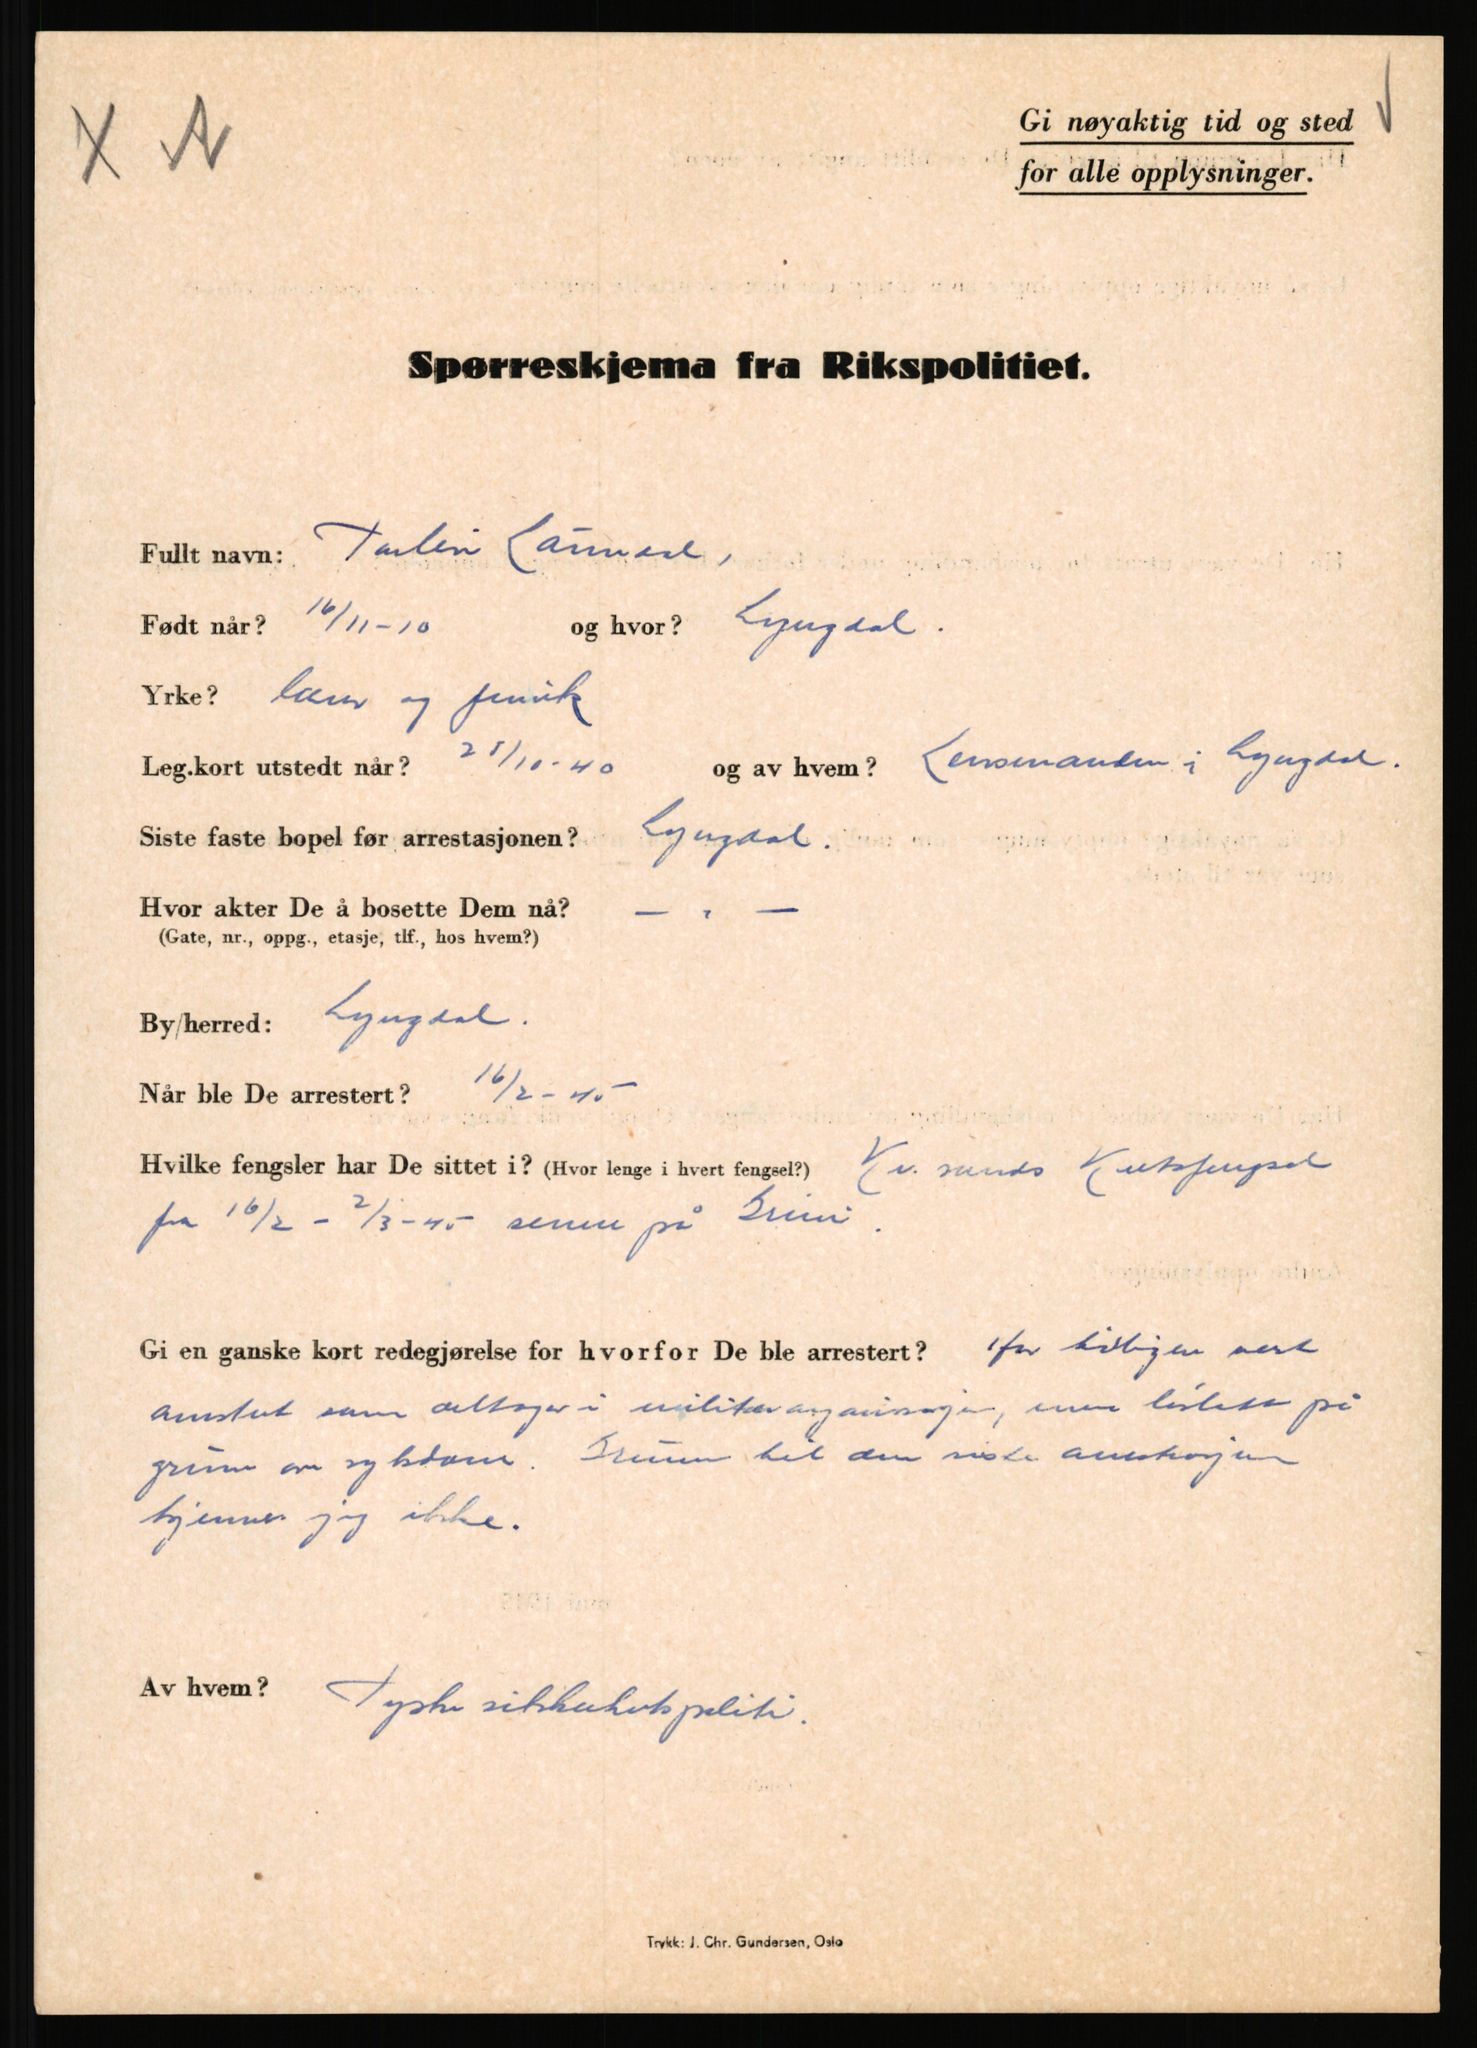 X N
Gi nøyaktig tid og sted
for alle opplysninger.
Spørreskjema fra Rikspolitiet.
Fullt navn:
Født når? 16/11-10 og hvor? Lyngdal.
Yrke? lærer og
Leg.kort utstedt når? 25/10-40 og av hvem? Lensmanden i Lyngdal.
Siste faste bopel før arrestasjonen? Lyngdal.
Hvor akter De å bosette Dem nå? — " —
(Gate, nr., oppg., etasje, tlf., hos hvem?)
By/herred: Lyngdal.
Når ble De arrestert? 16/2-45
Hvilke fengsler har De sittet i? (Hvor lenge i hvert fengsel?) Kr. sands Kretsfengsel
fra 16/2 - 2/3-45 senere på Grini.
Gi en ganske kort redegjørelse for hvorfor De ble arrestert? tidligere vært
arrestert som deltager i militærorganisasjon, men løslatt på
grunn av sykdom. Grunnen til den siste arrestasjon
kjenner jeg ikke.
Av hvem? Tyske sikkerhetspoliti.
Trykk: J. Chr. Gundersen, Oslo